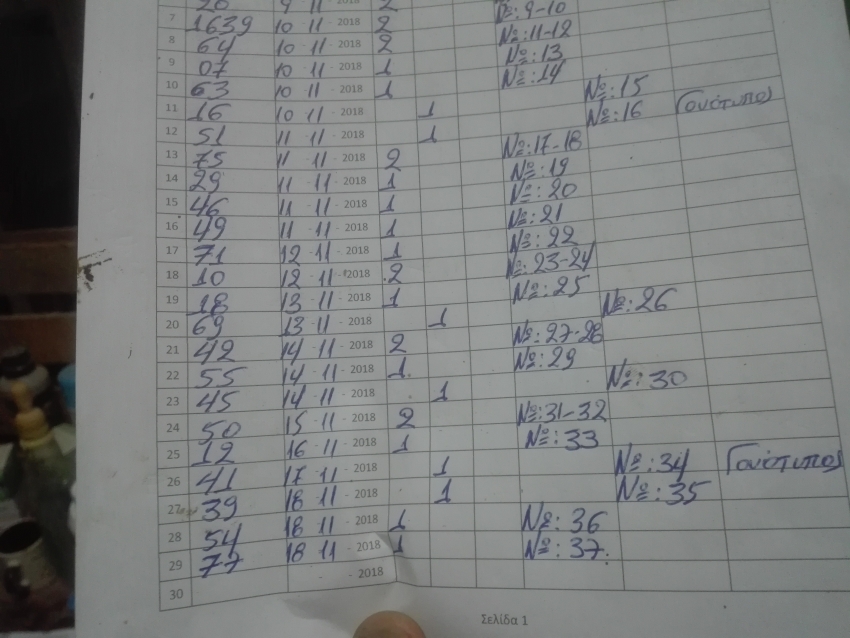 20 9 11 - 2018 2
7 1639 10 11 - 2018 2 №:9-10
8 64 10 11 - 2018 2 №:11-12
9 07 10 11 - 2018 1 №:13
10 63 10 11 - 2018 1 №:14
11 16 10 11 - 2018 1 №:15
12 51 11 11 - 2018 1 №:16 Γονότυπος
13 75 11 11 - 2018 2 №:17-18
14 29 11 11 - 2018 1 №:19
15 46 11 11 - 2018 1 №:20
16 49 11 11 - 2018 1 №:21
17 71 12 11 - 2018 1 №:22
18 10 12 11 - 2018 2 №:23-24
19 18 13 11 - 2018 1 №:25
20 69 13 11 - 2018 1 №:26
21 42 14 11 - 2018 2 №:27-28
22 55 14 11 - 2018 1 №:29
23 45 14 11 - 2018 1 №:30
24 50 15 11 - 2018 2 №:31-32
25 12 16 11 - 2018 1 №:33
26 41 17 11 - 2018 1 №:34 Γονότυπος
27 39 18 11 - 2018 1 №:35
28 54 18 11 - 2018 1 №:36
29 77 18 11 - 2018 1 №:37
30 - 2018
Σελίδα 1